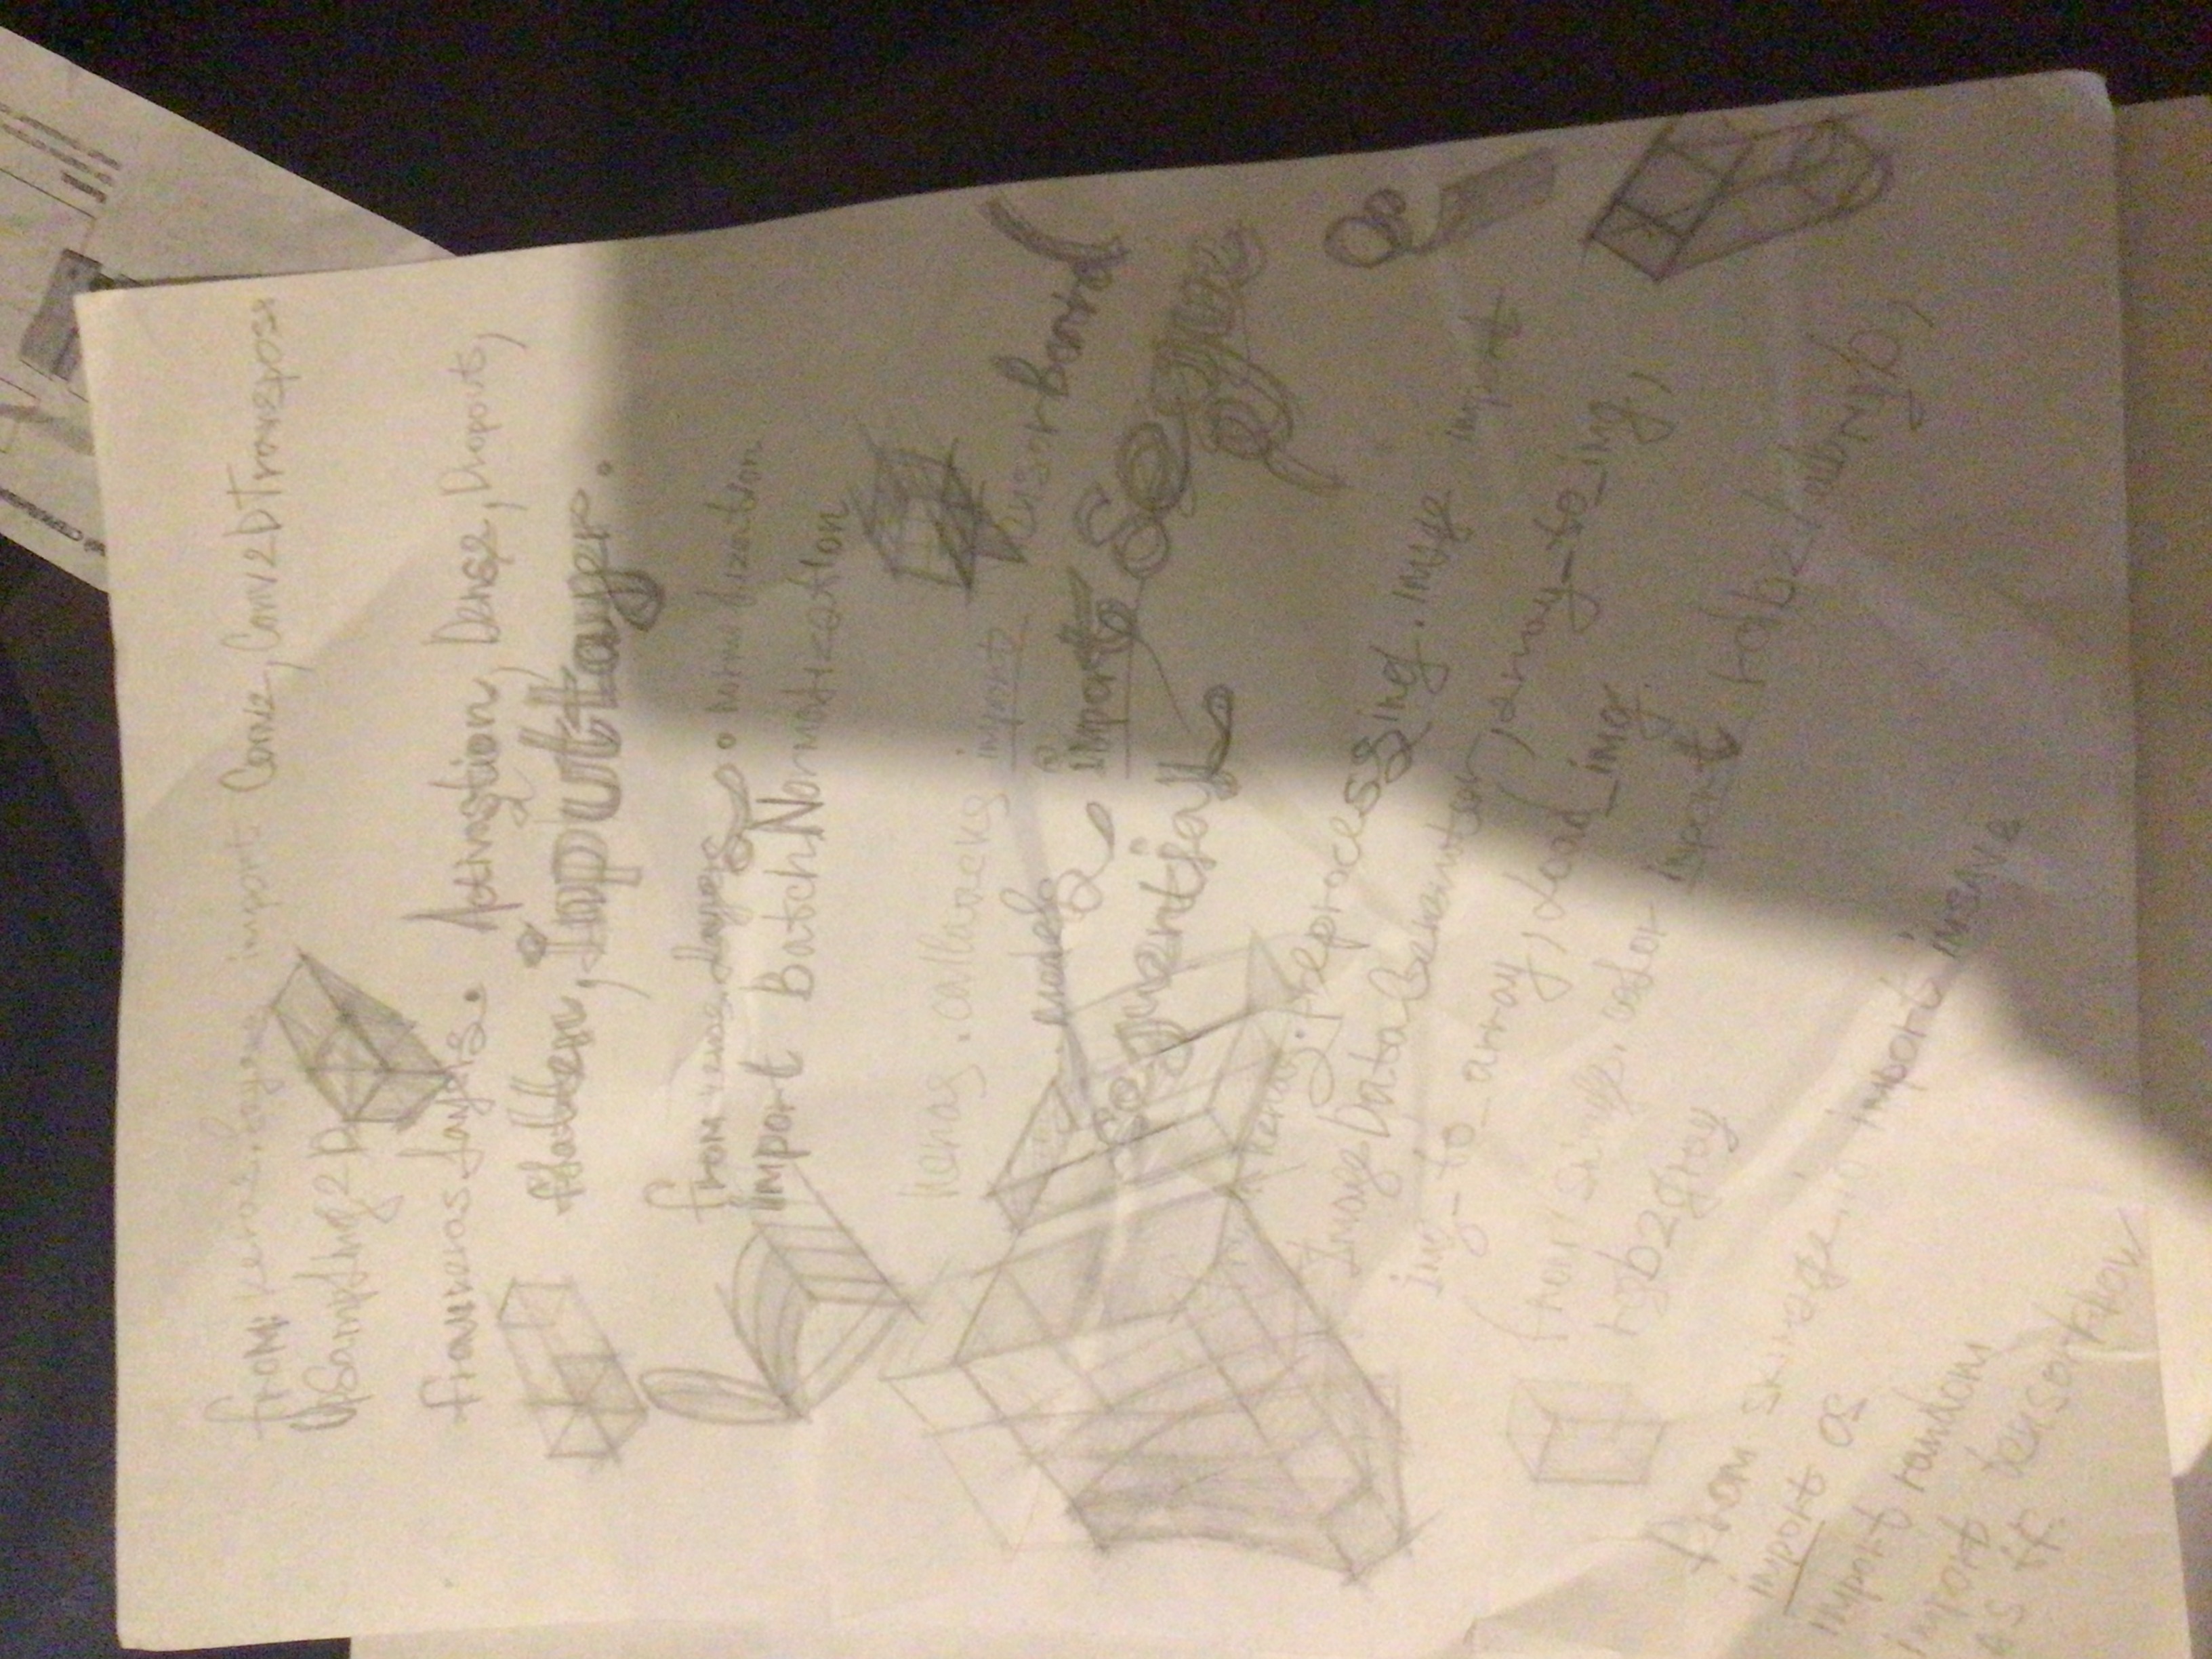 from: keras.layers import Conv2, Conv2DTranspose
UpSampling2D
layers. Activation, Dense, Dropout,
flatten, inputLayer.
from keras.layers . normalization
import BatchNormalization
keras.callbacks import TensorBoard
.models import Seque
Sequential
keras.preprocessing.image import
ImageDataGenerator, array_to_img,
img_to_array, Load_img.
from color import
rgb2gray
from skimage.io import imsave
import os
import random
import tensorflow
as tf.